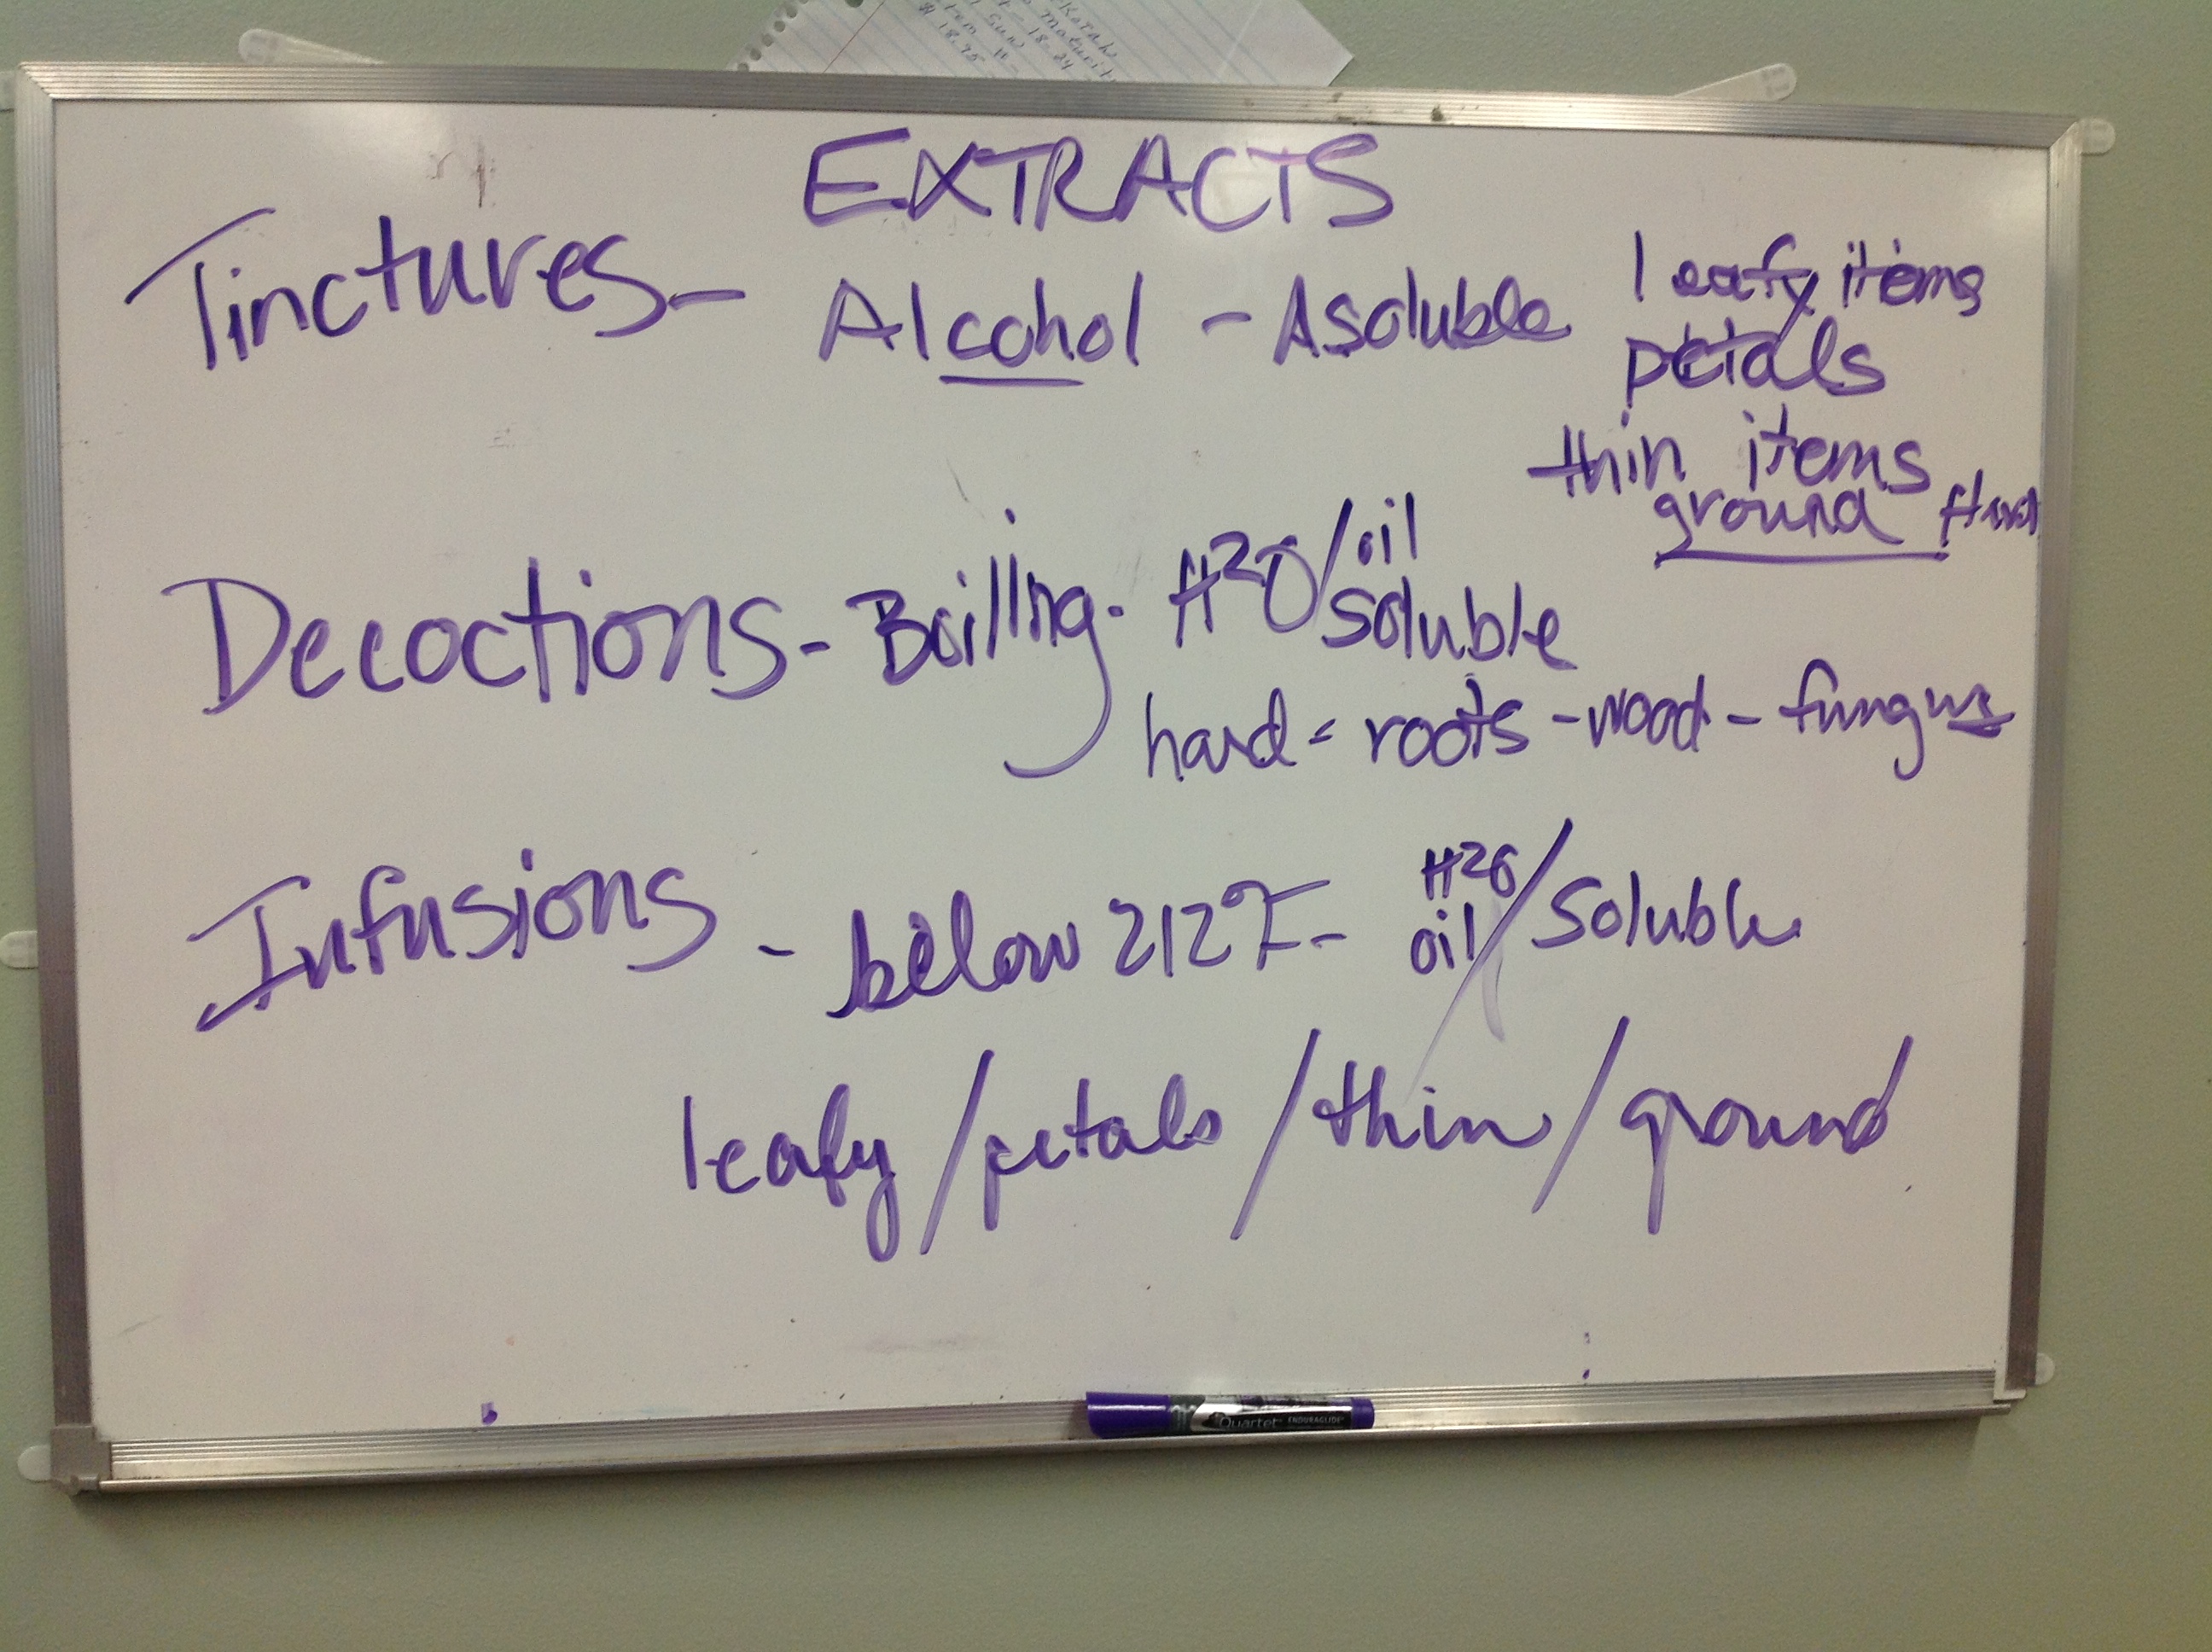 Karah
maturit
t - 18-24
Sun
tem H-
$18.75
EXTRACTS
Tinctures - Alcohol - Asoluble
leafy items
petals
thin items
ground Hard
Decoctions - Boiling - H20/oil soluble
hard = roots - wood - fungus
Infusions - below 212°F - H20 oil/soluble
leafy/petals/thin/ground
Quartet ENDURAGLIDE